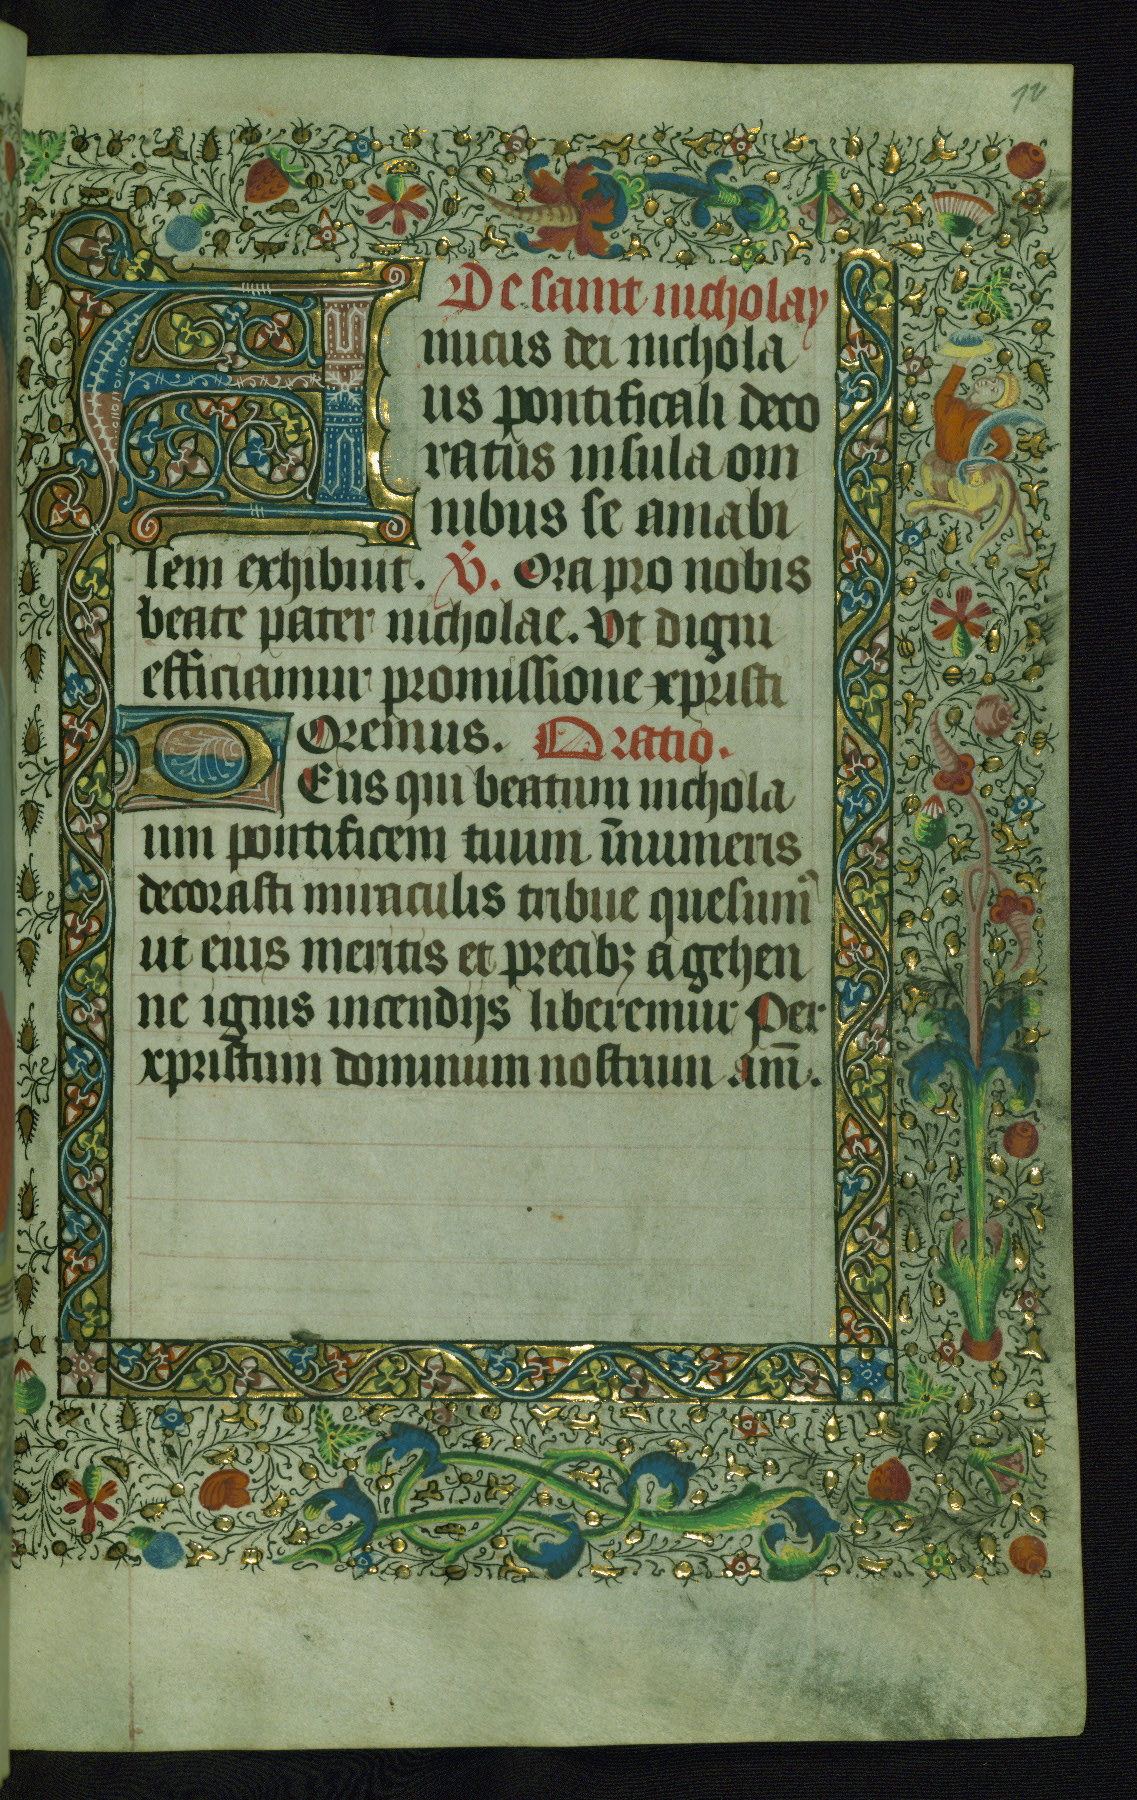 De saint nicholay
Amicus dei nichola
us pontificali deco
ratus insula om
nibus se amabi
lem exhibuit. V. Ora pro nobis
beate pater nicholae. Vt digni
efficiamur promissione xpristi
Oremus. Oratio.
DEus qui beatum nichola
um pontificem tuum īnumeris
decorasti miraculis tribue quesum᷒
ut eius meritis et precibꝫ a gehen
ne ignis incendijs liberemur Per
xpristum dominum nostrum am̄.